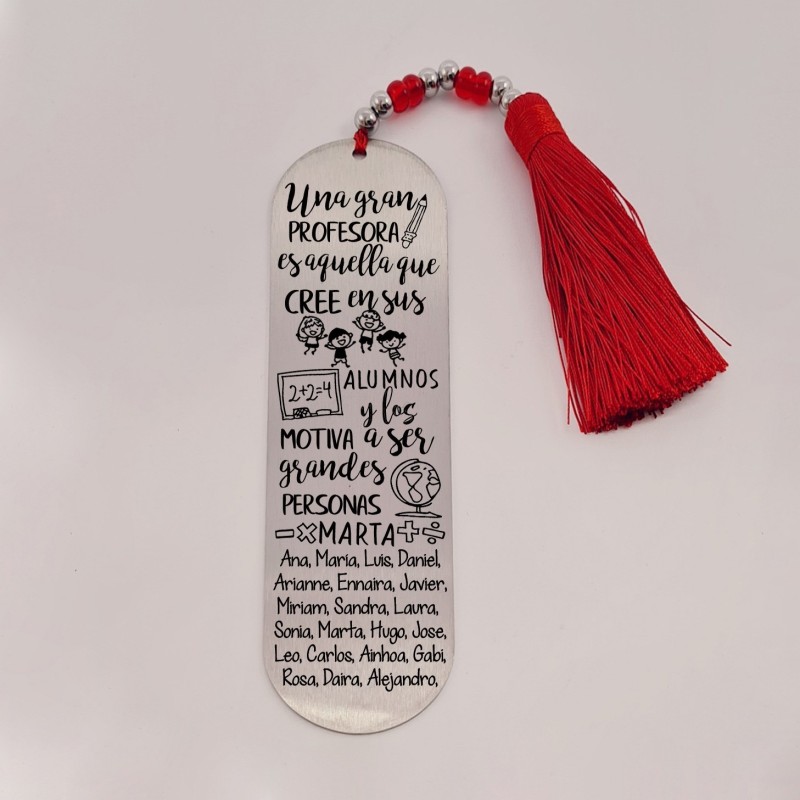 Una gran
PROFESORA
es aquella que
CREE en sus
ALUMNOS
2+2=4
y los
MOTIVA a ser
grandes
PERSONAS
−×MARTA+÷
Ana, María, Luis, Daniel,
Arianne, Ennaira, Javier,
Miriam, Sandra, Laura,
Sonia, Marta, Hugo, Jose,
Leo, Carlos, Ainhoa, Gabi,
Rosa, Daira, Alejandro,